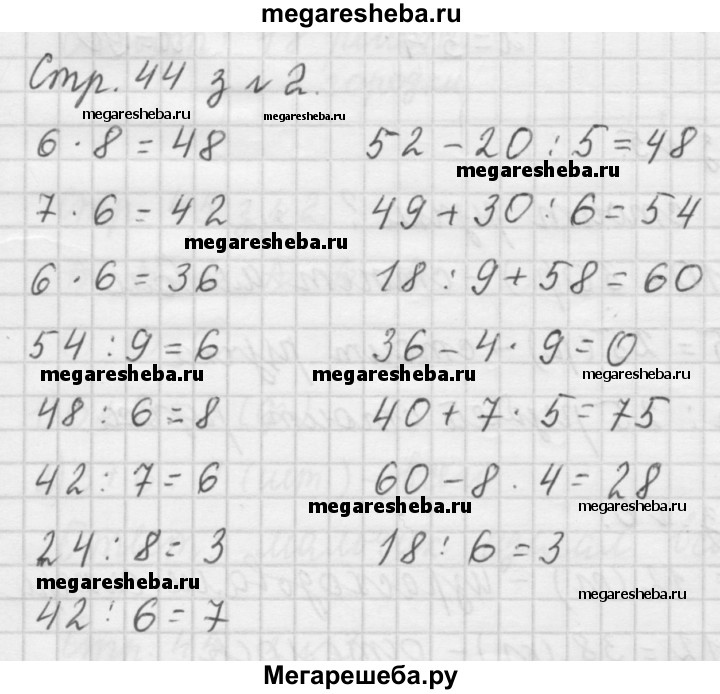 megaresheba.ru
Стр. 44 з № 2.
megaresheba.ru megaresheba.ru
6 · 8 = 48 52 - 20 : 5 = 48
megaresheba.ru
7 · 6 = 42 49 + 30 : 6 = 54
megaresheba.ru
6 · 6 = 36 18 : 9 + 58 = 60
54 : 9 = 6 36 - 4 · 9 = 0
megaresheba.ru megaresheba.ru megaresheba.ru
48 : 6 = 8 40 + 7 · 5 = 75
42 : 7 = 6 60 - 8 · 4 = 28
megaresheba.ru megaresheba.ru
24 : 8 = 3 18 : 6 = 3
megaresheba.ru megaresheba.ru
42 : 6 = 7
Мегарешеба.ру